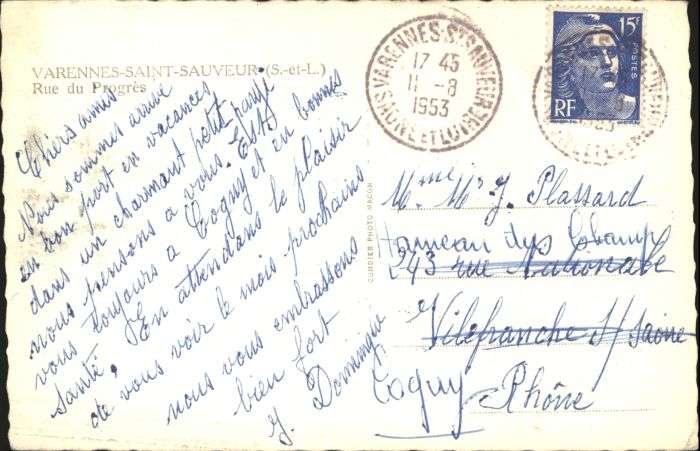 VARENNES-SAINT-SAUVEUR (S.-et-L.)
Rue du Progrès
Chers amis
Nous sommes arrivé
en bon port en vacances
dans un charmant petit pays
nous pensons a vous. Est
vous toujours a Cogny et en bonnes
santé. En attendans le plaisir
de vous voir le mois prochains
nous vous embrassons
bien fort
J. Dominique
COMBIER PHOTO MACON
VARENNES-ST SAUVEUR
17 45
11 -8
1953
SAONE ET LOIRE
15F
POSTES
RF
Mme Mr J. Plassard
Hameau dys Champ
243 rue Nationale
Vilefranche S/ Saône
Cogny Rhône